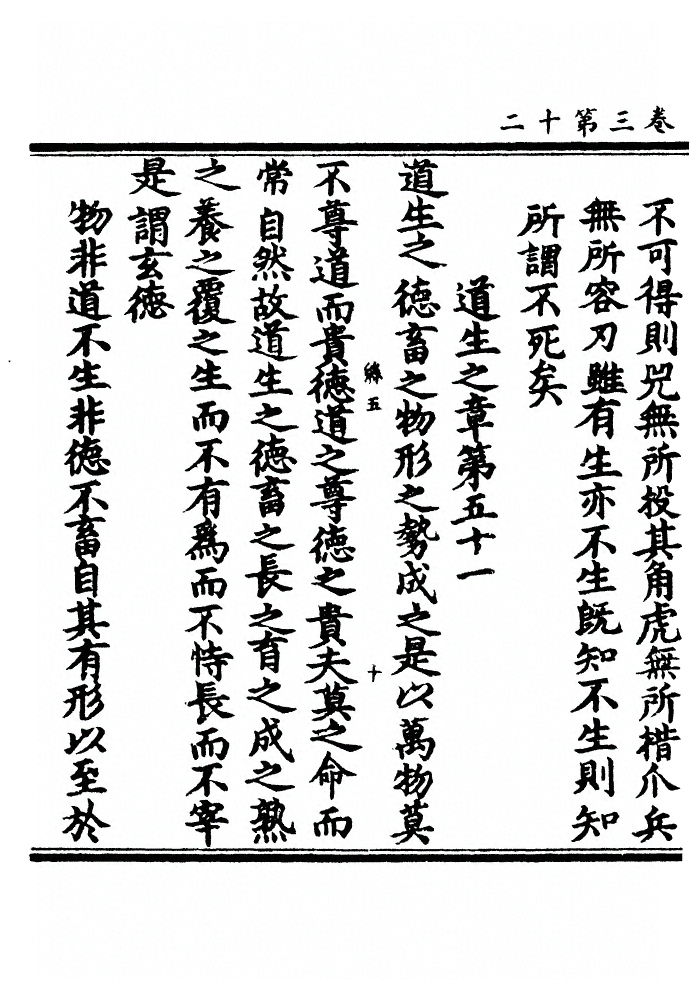 卷三第十二
不可得則兕無所投其角虎無所措爪兵
無所容刃雖有生亦不生既知不生則知
所謂不死矣
道生之章第五十一
道生之德畜之物形之勢成之是以萬物莫
絲五
十
不尊道而貴德道之尊德之貴夫莫之命而
常自然故道生之德畜之長之育之成之熟
之養之覆之生而不有爲而不恃長而不宰
是謂玄德
物非道不生非德不畜自其有形以至於